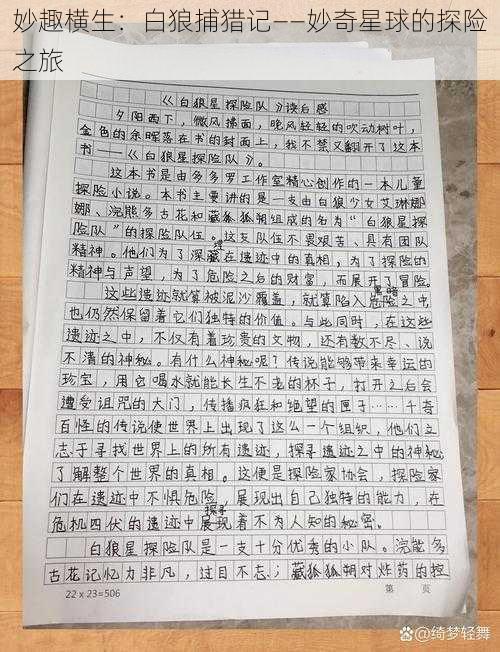 妙趣横生：白狼捕猎记——妙奇星球的探险
之旅
《白狼星探险队》读后感
夕阳西下，微风拂面，晚风轻轻的吹动树叶，
金色的余晖落在书的封面上，我不禁又翻开了这本
书——《白狼星探险队》。
这本书是由多多罗工作室精心创作的一本儿童
探险小说。本书主要讲的是一支由白狼少女艾琳娜
娜、浣熊多古花和藏狐狐朔组成的名为“白狼星探
险队”的探险队伍。这支队伍不畏艰苦、具有团队
精神。他们为了深藏在遗迹中的真相，为了探险的
精神与声望，为了危险之后的财富，而展开了冒险。
这些遗迹就算被泥沙覆盖，就算陷入黑暗之中
也仍然保留着它们独特的价值。与此同时，在这些
遗迹之中，不仅有着珍贵的文物，还有数不尽、说
不清的神秘。有什么神秘呢？传说能够带来幸运的
珍宝，用它喝水就能长生不老的杯子，打开之后会
遭受诅咒的大门，传播疯狂和绝望的匣子……千奇
百怪的传说使世界上出现了这么一个组织，他们立
志于寻找世界上的所有遗迹，探寻遗迹之中的神秘
了解整个世界的真相。这便是探险家协会，探险家
们在遗迹中不惧危险，展现出自己独特的能力，在
危机四伏的遗迹中探寻着不为人知的秘密。
白狼星探险队是一支十分优秀的小队。浣熊多
古花记忆力非凡，过目不忘；藏狐狐朔对炸药的控
22×23=506
第 页
@绮梦轻舞